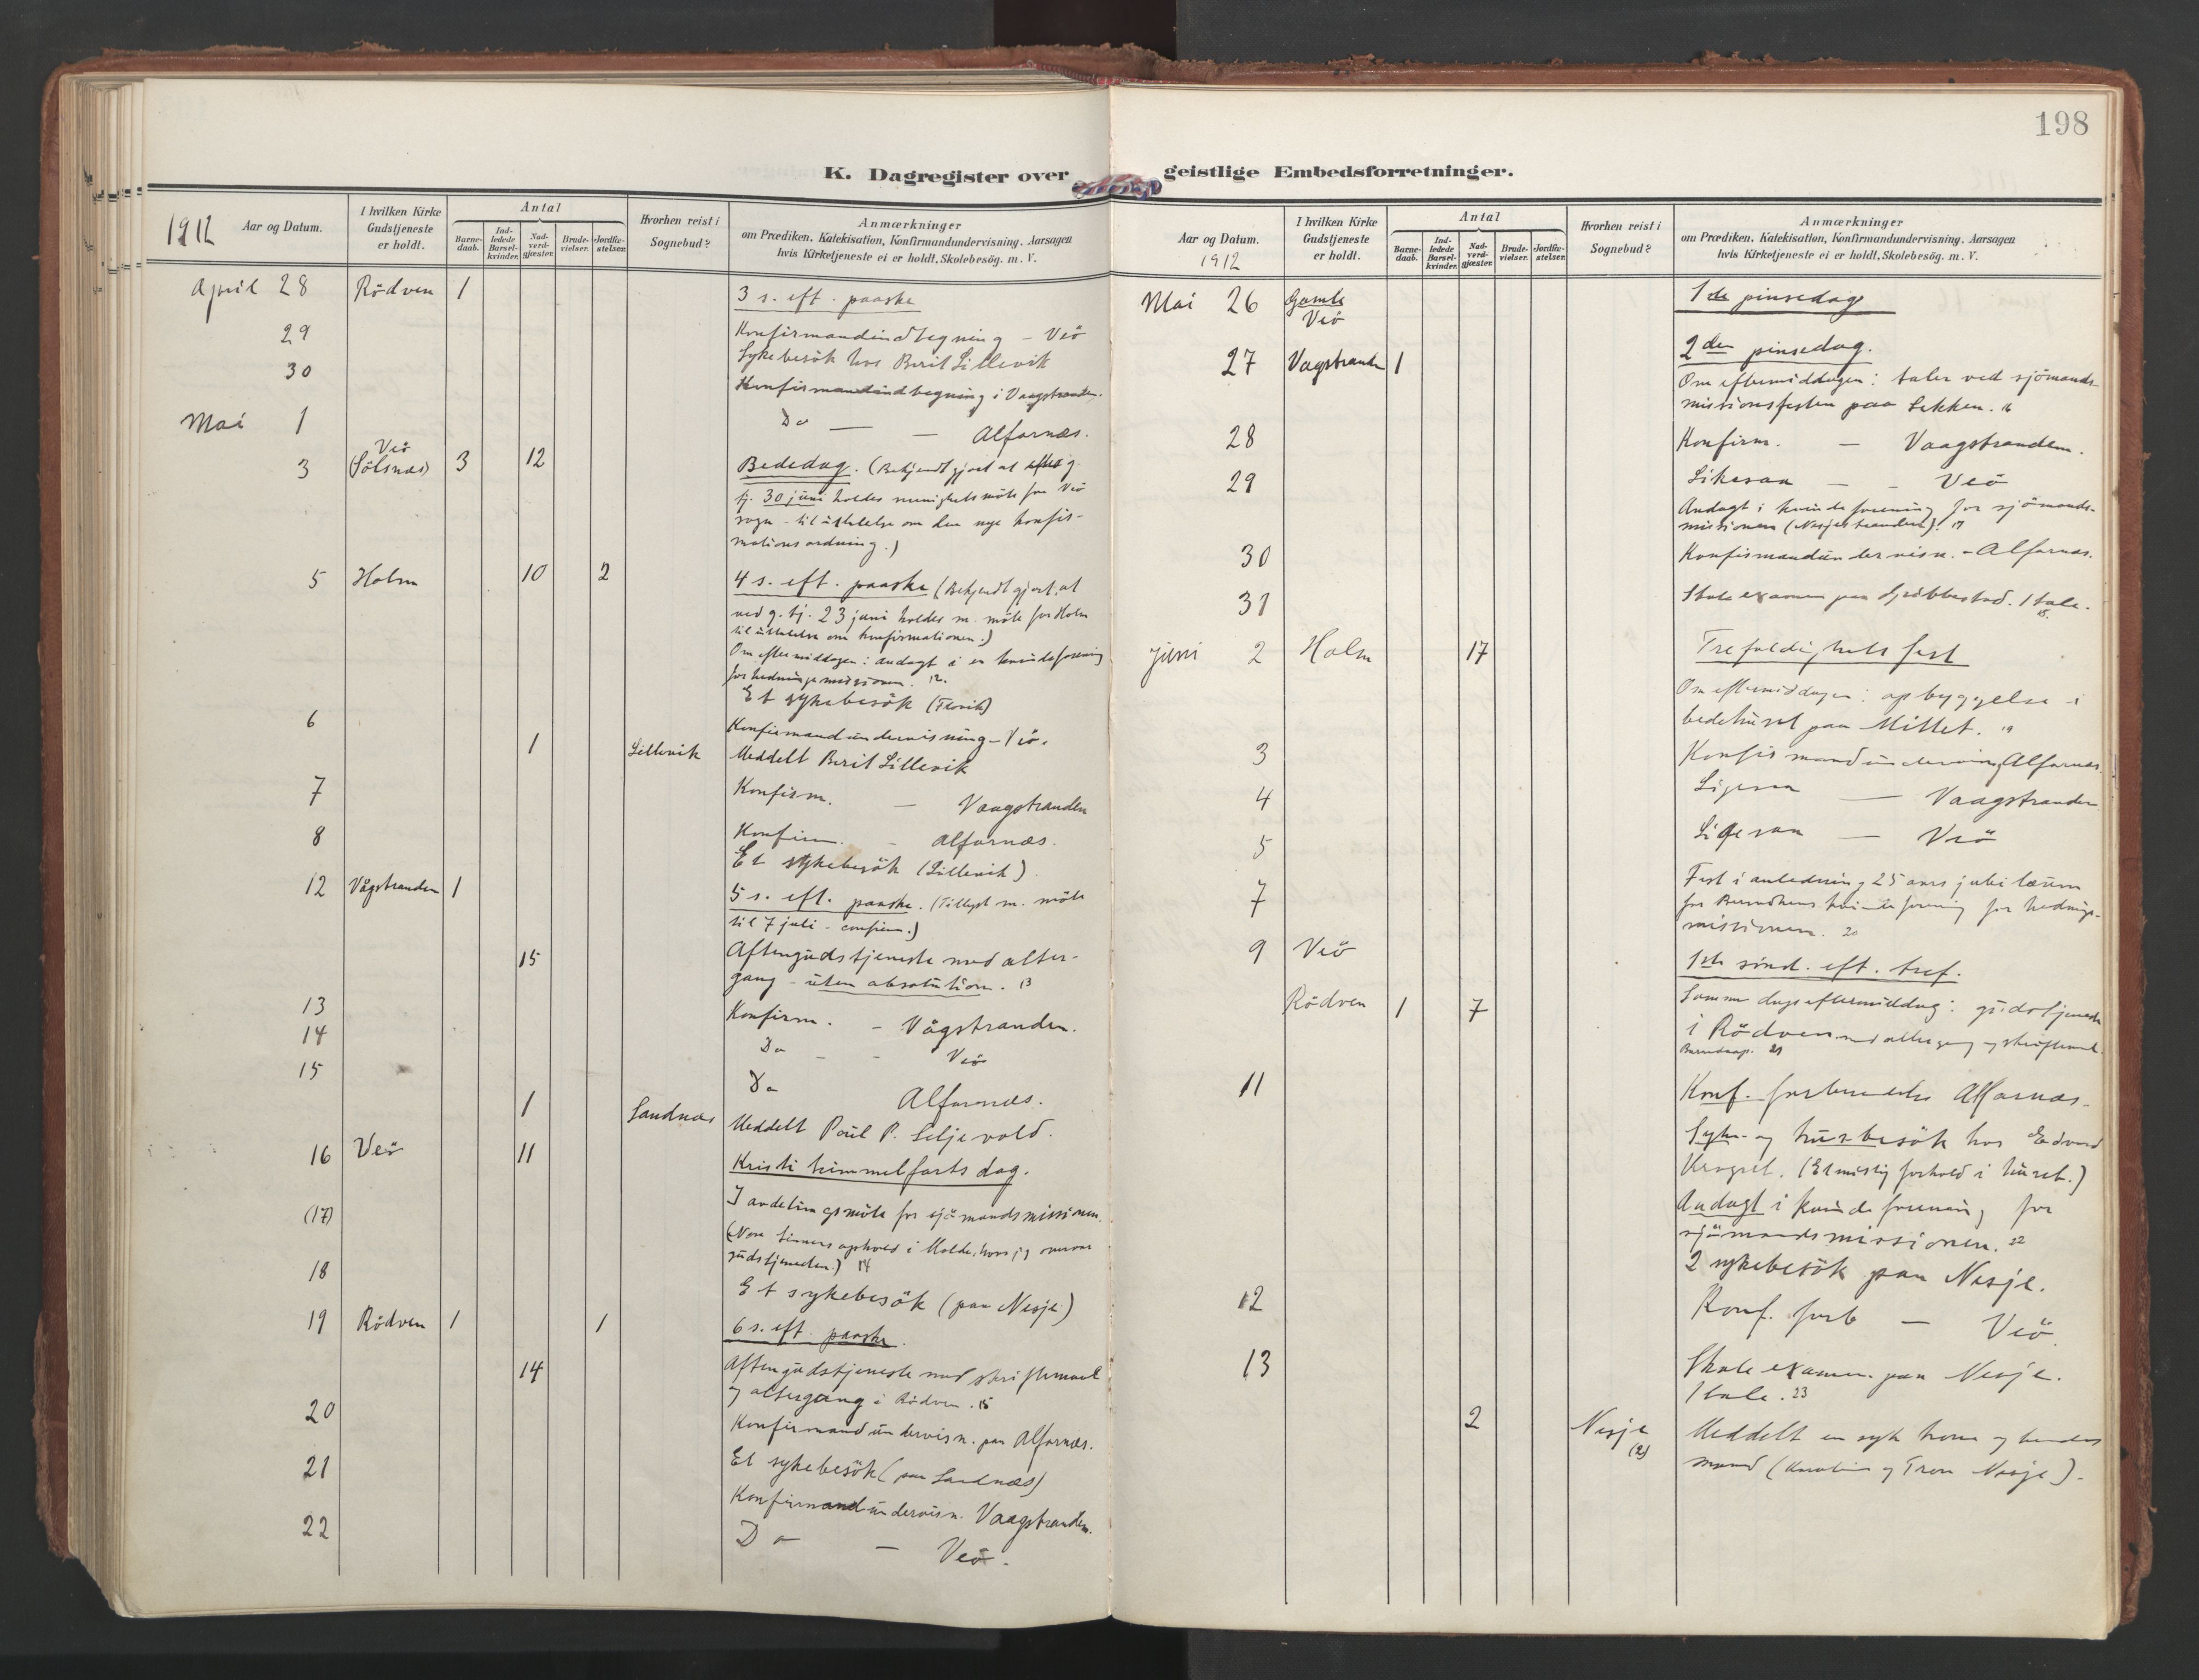 198
K. Dagregister over geistlige Embedsforretninger.
1912 Aar og Datum.
I hvilken Kirke Gudstjeneste er holdt.
Antal
Barne-daab.
Ind-ledede Barsel-kvinder.
Nad-verd-gjæster.
Brude-vielser.
Jordfæ-stelser.
Hvorhen reist i Sognebud?
Anmærkninger
om Prædiken, Katekisation, Konfirmandundervisning, Aarsagen
hvis Kirketjeneste ei er holdt, Skolebesøg. m. V.
April 28 Rödven 1 3 s. eft. paaske
29 Konfirmandindtegning - Veö
Sykebesök hos Berit Lillevik
30 Konfirmandindtegning i Vaagstranden.
Mai 1 Do — — Alfarnæs.
3 Veö (Sölsnæs) 3 12 Bededag. (Bekjendtgjort at efter g.
tj. 30 juni holdes menighetsmöte for Veö
sogn - til üttalelse om den nye konfir-
mationsordning.)
5 Holm 10 2 4 s. eft. paaske (Bekjendtgjort, at
ved g. tj. 23 juni holdes m. möte for Holm
til üttalelse om konfirmationen.)
Om eftermiddagen: andagt i en kvindeforening
for hedningemissionen. 12.
Et sykebesök
6 Konfirmandündervisning - Veö.
1 Lillevik Meddelt Berit Lillevik
7 Konfirm. — Vaagstranden
8 Konfirm. - Alfarnæs.
Et sykebesök (Lillevik)
12 Vågstranden 1 5 s. eft. paaske. (Tillyst m. möte
til 7 juli - confirm.)
15 Aftengüdstjeneste med alter-
gang - üten absolütion. 13
13 Konfirm. - Vågstranden.
14 Do - - Veö
15 Do Alfarnæs.
1 Sandnæs Meddelt Poül P. Liljevold.
16 Veö 11 Kristi himmelfarts dag.
(17) I avdelingsmöte for sjömandsmissionen.
i Molde, hvor jeg overvar
güdstjenesten.) 14
18 Et sykebesök (paa Nesje)
19 Rödven 1 1 6 s. eft. paaske.
14 Aftengüdstjeneste med skriftemaal
og altergang i Rödven. 15
20 Konfirmandündervisn. paa Alfarnæs.
21 Et sykebesök (paa Sandnæs)
Konfirmandündervisn. Vaagstranden.
22 Do — Veö.
Aar og Datum. 1912
I hvilken Kirke Gudstjeneste er holdt.
Antal
Barne-daab.
Ind-ledede Barsel-kvinder.
Nad-verd-gjæster.
Brude-vielser.
Jordfæ-stelser.
Hvorhen reist i Sognebud?
Anmærkninger
om Prædiken, Katekisation, Konfirmandundervisning, Aarsagen
hvis Kirketjeneste ei er holdt, Skolebesøg. m. V.
Mai 26 Gamle Veö 1ste pinsedag
27 Vagstranden 1 2den pinsedag.
Om eftermiddagen: taler ved sjömands-
missionsfesten paa Sekken. 16
28 Konfirm. — Vaagstranden.
29 Likesaa — - Veö
Andagt i kvindeforening for sjömands-
missionen (Nesjestranden). 17
30 Konfirmandündervisn. - Alfarnæs.
31 Skoleexamen paa Gröbbestad. 1 tale. 18.
juni 2 Holm 17 Trefoldighetsfest
Om eftermiddagen: opbyggelse i
bedehüset paa Mittet. 19
3 Konfirmandündervisning Alfarnæs.
4 Ligesaa — Vaagstranden
5 Ligesaa — Veö
7 Fest i anledning 25 aars jubilæüm
for kvindeforening for hednings-
missionen. 20
9 Veö 1ste sönd. eft. tref.
Rödven 1 7 Samme dags eftermiddag: güdstjeneste
i Rödven med altergang og skriftemaal.
Barnedaap. 21
11 Konf. forberedelse Alfarnæs.
Syke- og hüsbesök hos Edvard
(Et mislig forhold i hüset.)
Andagt i kvindeforening for
sjömandsmissionen. 22
2 sykebesök paa Nesje.
12 Konf. forb — Veö.
13 Skoleexamen paa Nesje.
1 tale. 23
2 Nesje (2) Meddelt en syk kone og hendes
mand (Karoline og Tron Nesje).